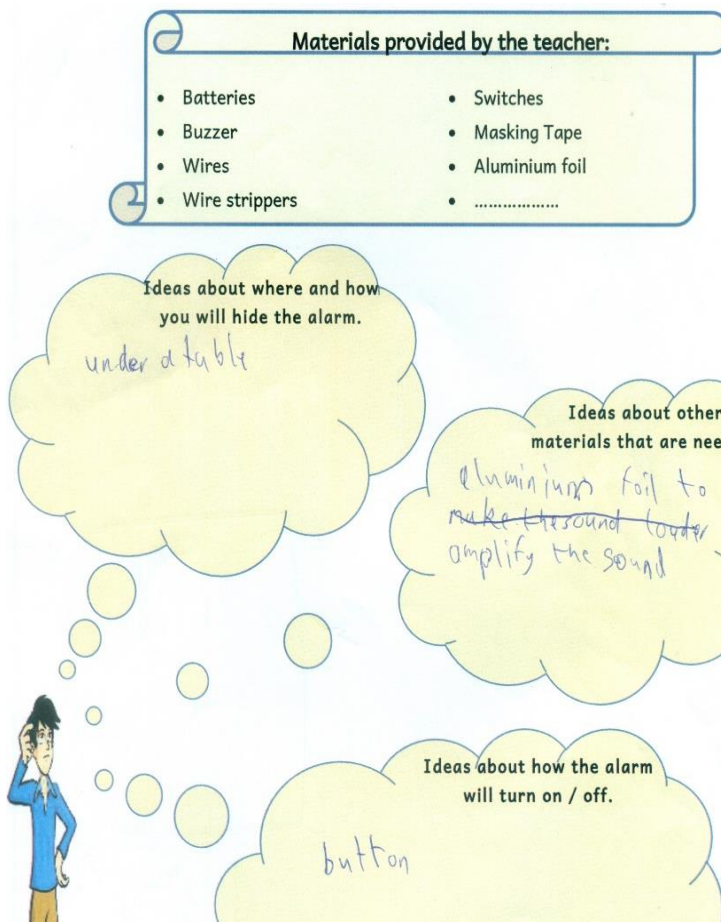 Materials provided by the teacher:
• Batteries
• Buzzer
• Wires
• Wire strippers
• Switches
• Masking Tape
• Aluminium foil
• ..................
Ideas about where and how
you will hide the alarm.
under a table
Ideas about other
materials that are nee
aluminium foil to
make the sound louder
amplify the sound
Ideas about how the alarm
will turn on / off.
button